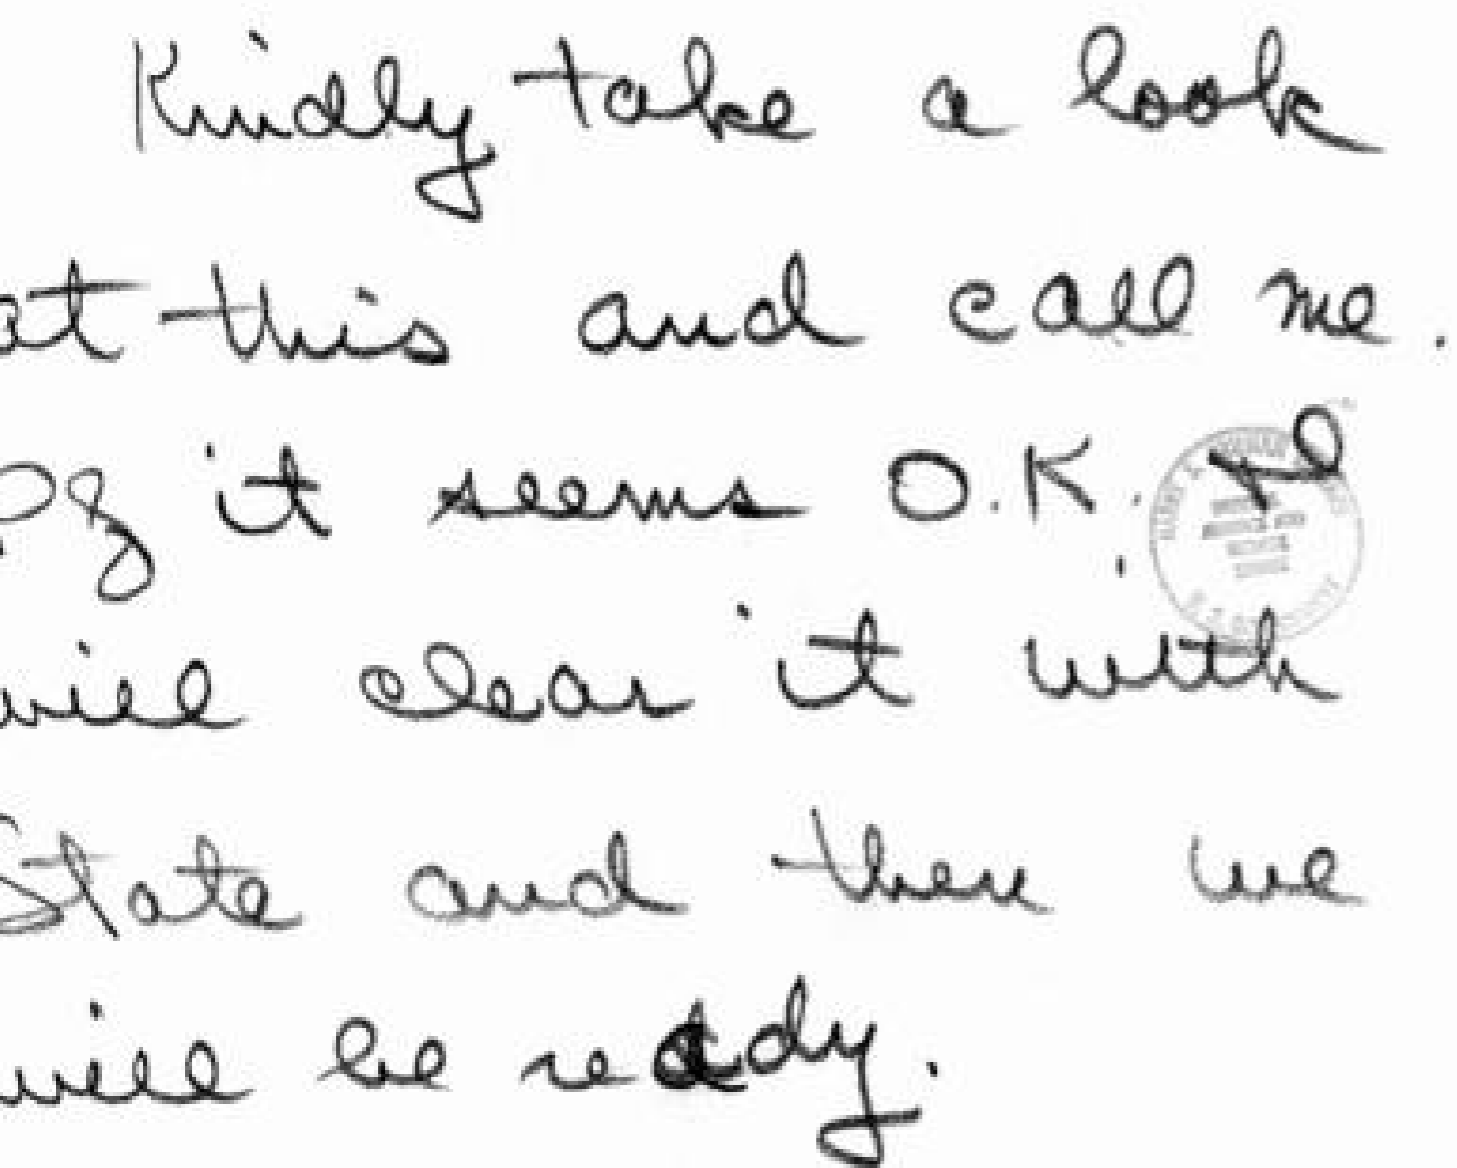 Kindly take a look
at this and call me.
If it seems O.K. I
will clear it with
State and then we
will be ready.